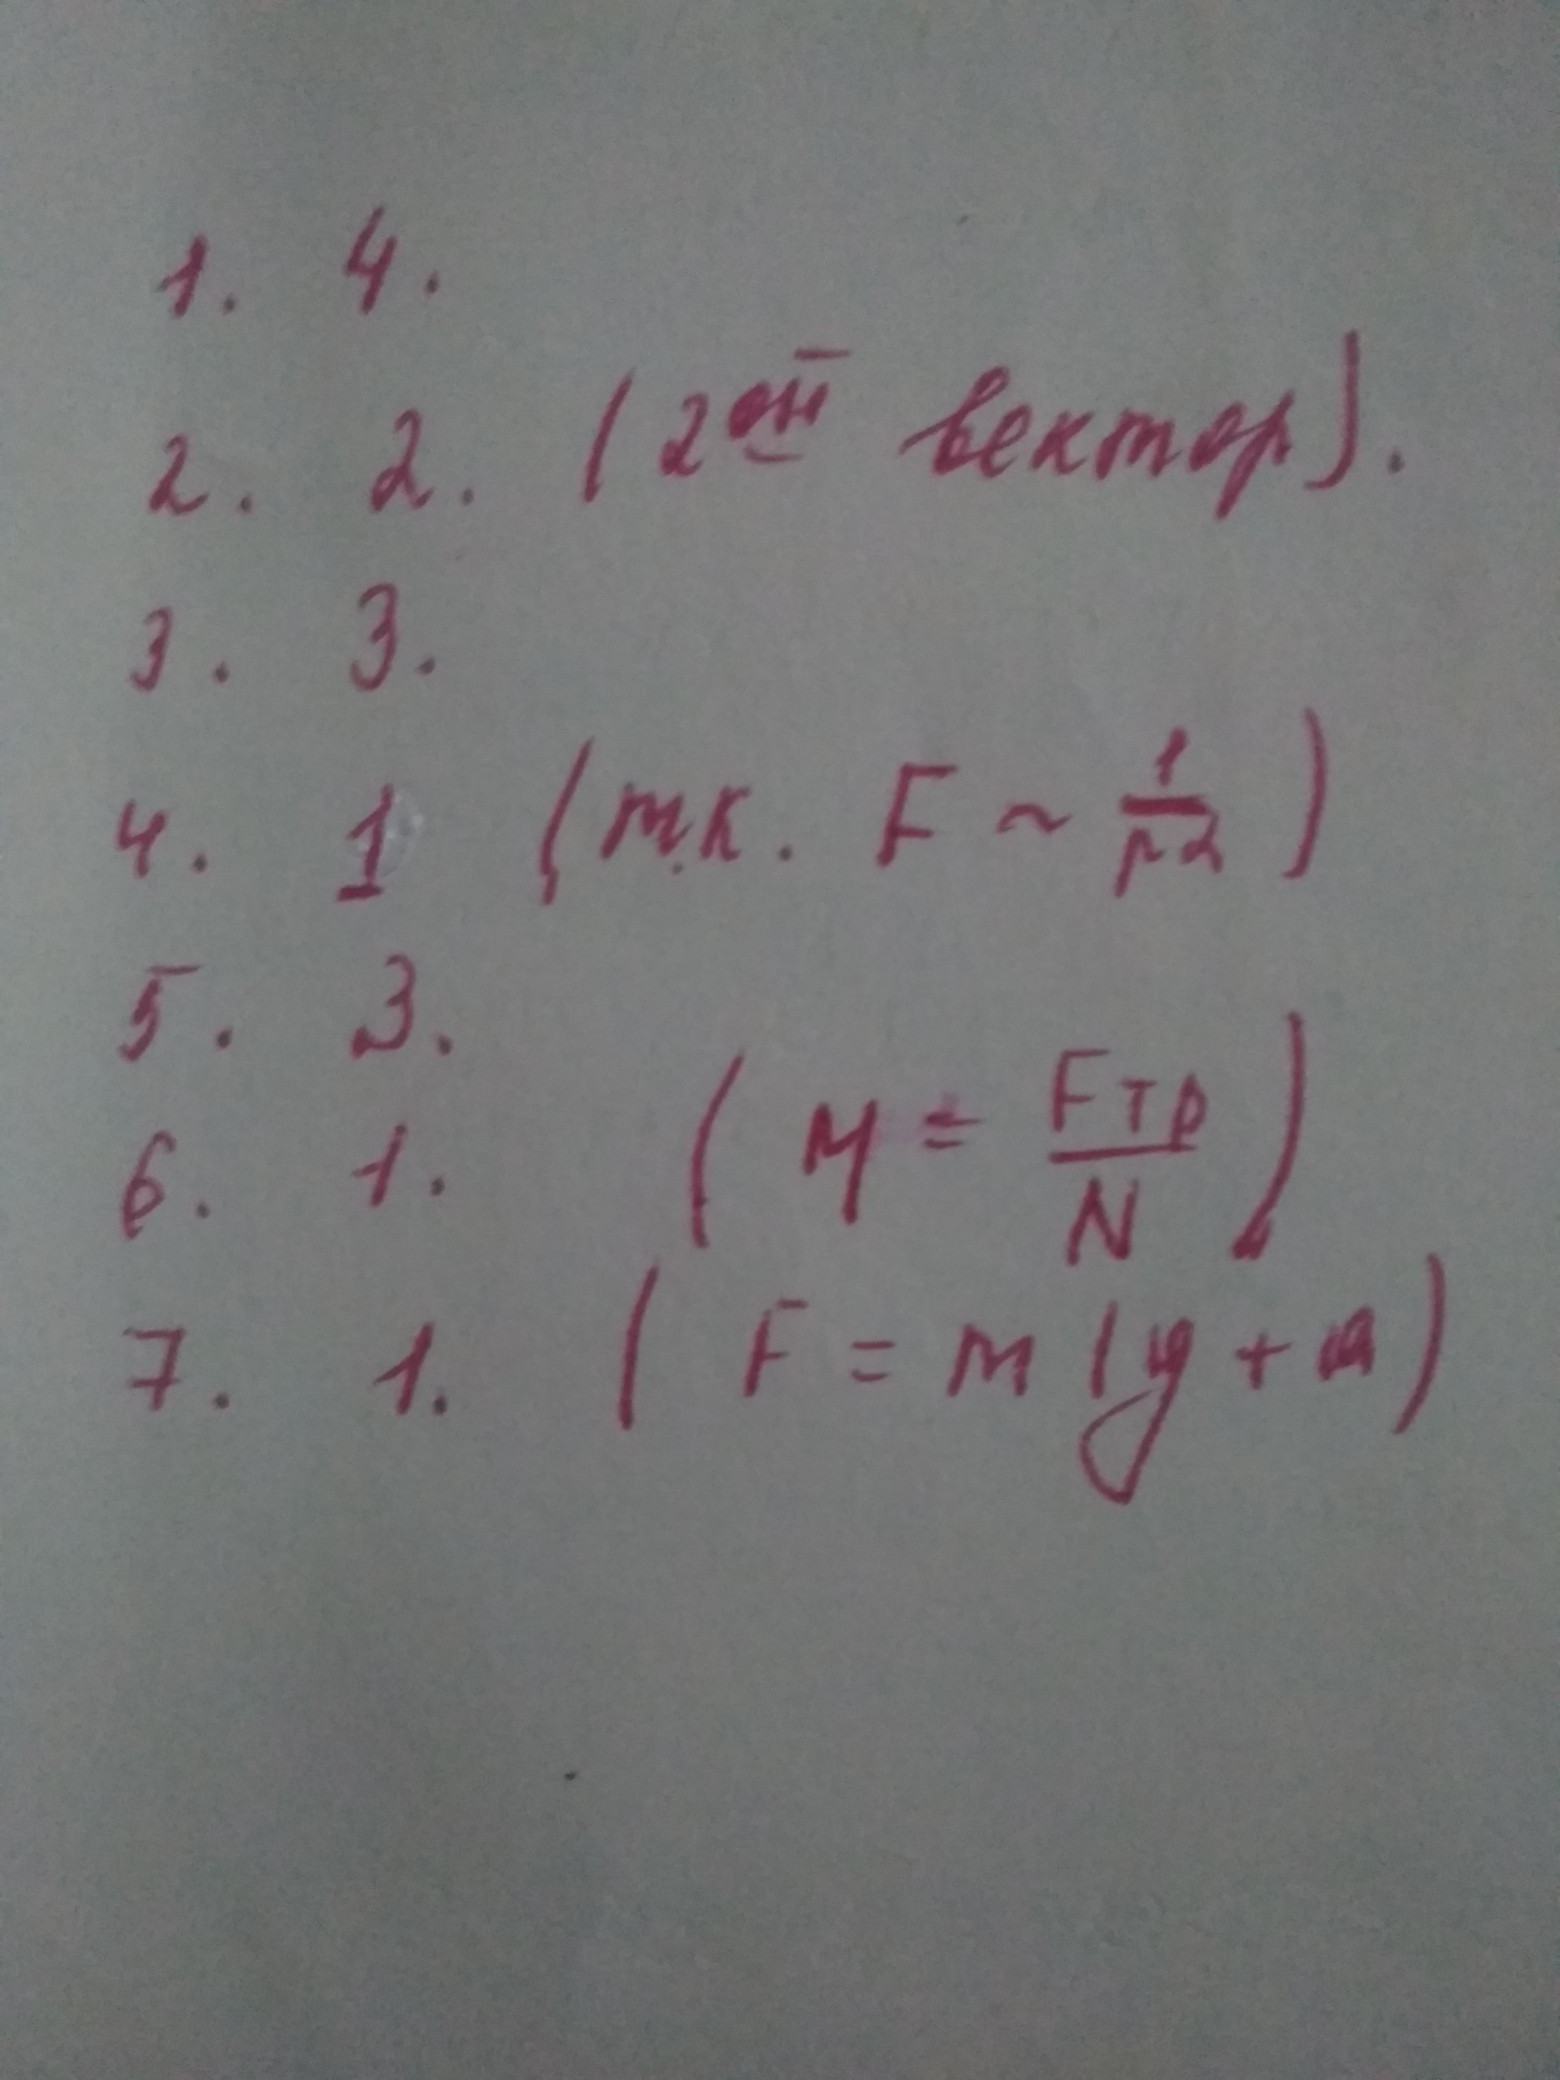 1. 4.
2. 2. (2ой вектор).
3. 3.
4. 1 (т.к. F ~ 1/r2)
5. 3.
6. 1. (М = Fтр/N)
7. 1. (F = m (g + a)